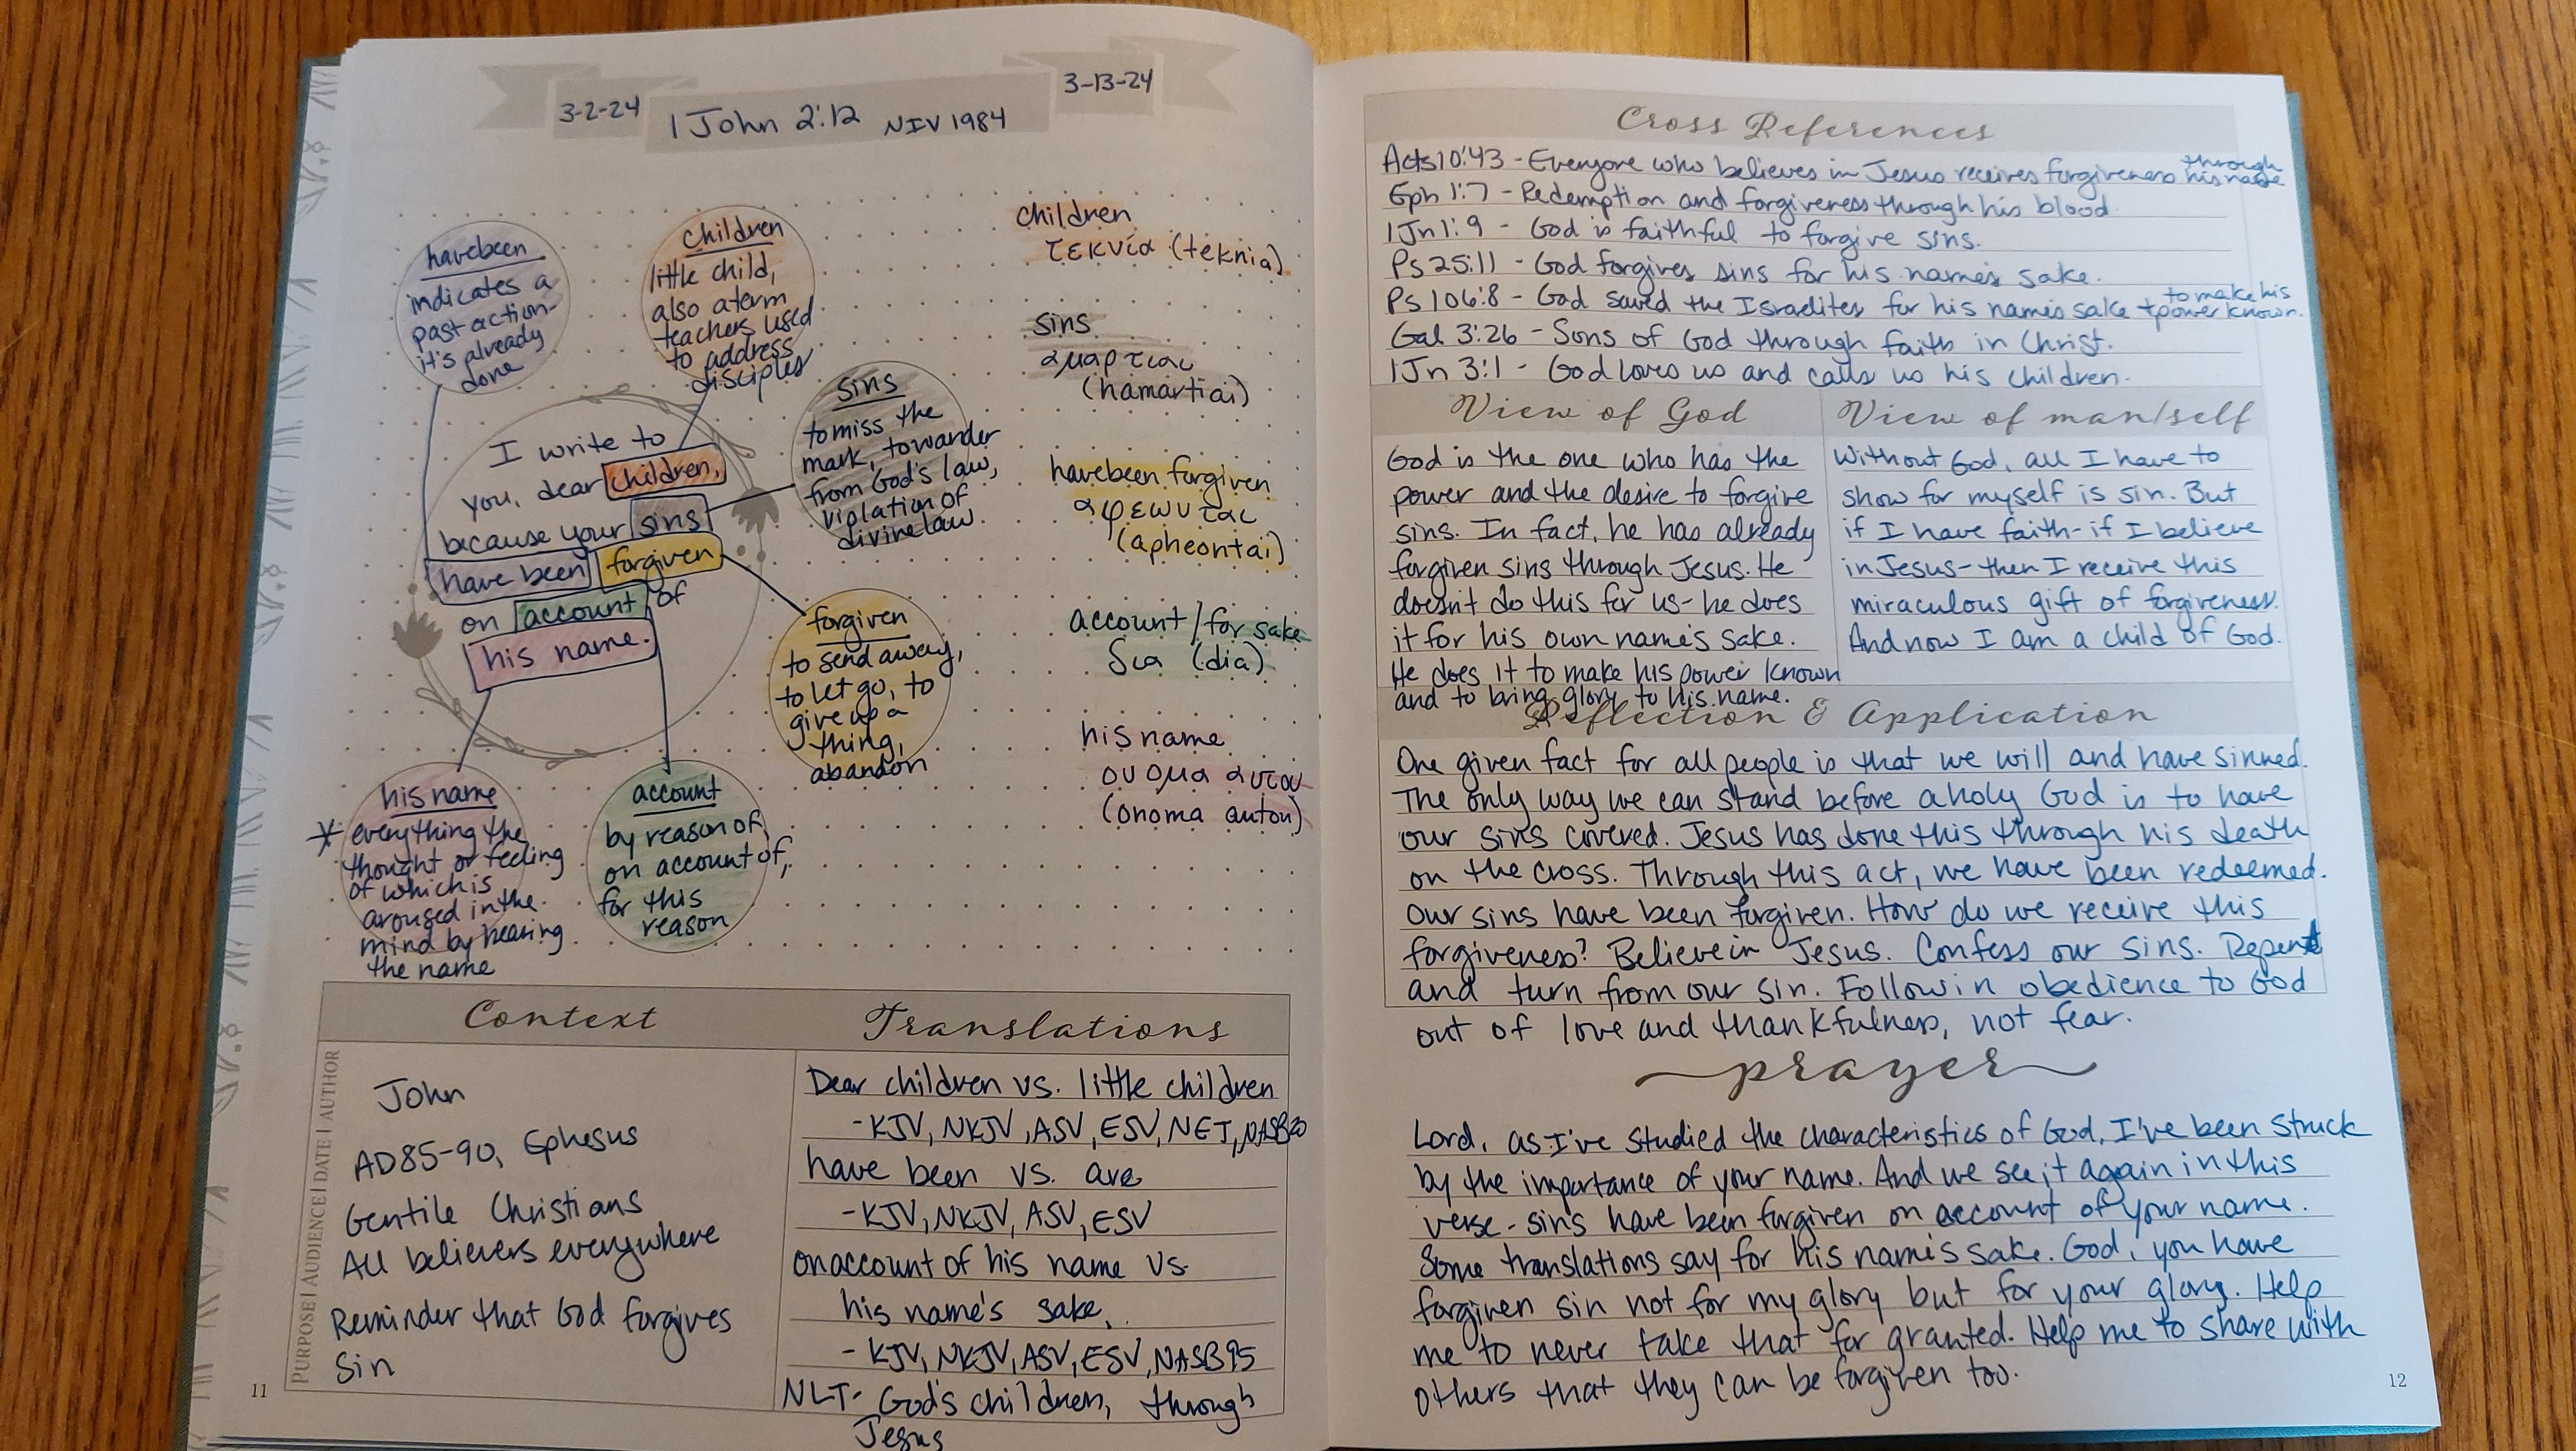 3-2-24
1 John 2:12 NIV 1984
3-13-24
have been
indicates a
past action-
it's already
done
children
little child,
also a term
teachers used
to address
disciples
sins
to miss the
mark, to wander
from God's law,
violation of
divine law.
I write to
you, dear children,
because your sins
have been forgiven
on account of
his name.
forgiven
to send away,
to let go, to
give up a
thing,
abandon
his name
* everything the
thought or feeling
of which is
aroused in the
mind by hearing
the name
account
by reason of,
on account of,
for this
reason
children
τεκνία (teknia)
sins
αμαρτιαι
(hamartiai)
have been forgiven
αφεωνται
(apheontai)
account / for sake
δια (dia)
his name
ονομα αυτου
(onoma autou)
Context
Translations
PURPOSE | AUDIENCE | DATE | AUTHOR
John
AD85-90, Ephesus
Gentile Christians
All believers everywhere
Reminder that God forgives
sin
Dear children vs. little children
-KJV, NKJV, ASV, ESV, NET, NASB20
have been vs. are
-KJV, NKJV, ASV, ESV
on account of his name vs.
his name's sake.
- KJV, NKJV, ASV, ESV, NASB95
NLT- God's children, through
Jesus
11
Cross References
Acts 10:43 - Everyone who believes in Jesus receives forgiveness through his name
Eph 1:7 - Redemption and forgiveness through his blood.
1 Jn 1:9 - God is faithful to forgive sins.
Ps 25:11 - God forgives sins for his name's sake.
Ps 106:8 - God saved the Israelites for his name's sake + to make his power known.
Gal 3:26 - Sons of God through faith in Christ.
1 Jn 3:1 - God loves us and calls us his children.
View of God
God is the one who has the
power and the desire to forgive
sins. In fact, he has already
forgiven sins through Jesus. He
doesn't do this for us- he does
it for his own name's sake.
He does it to make his power known
and to bring glory to his name.
View of man/self
Without God, all I have to
show for myself is sin. But
if I have faith-if I believe
in Jesus-then I receive this
miraculous gift of forgiveness.
And now I am a child of God.
Reflection & Application
One given fact for all people is that we will and have sinned.
The only way we can stand before a holy God is to have
our sins covered. Jesus has done this through his death
on the cross. Through this act, we have been redeemed.
Our sins have been forgiven. How do we receive this
forgiveness? Believe in Jesus. Confess our sins. Repent
and turn from our sin. Follow in obedience to God
out of love and thankfulness, not fear.
prayer
Lord, as I've studied the characteristics of God, I've been struck
by the importance of your name. And we see it again in this
verse - sins have been forgiven on account of your name.
Some translations say for his name's sake. God, you have
forgiven sin not for my glory but for your glory. Help
me to never take that for granted. Help me to share with
others that they can be forgiven too.
12